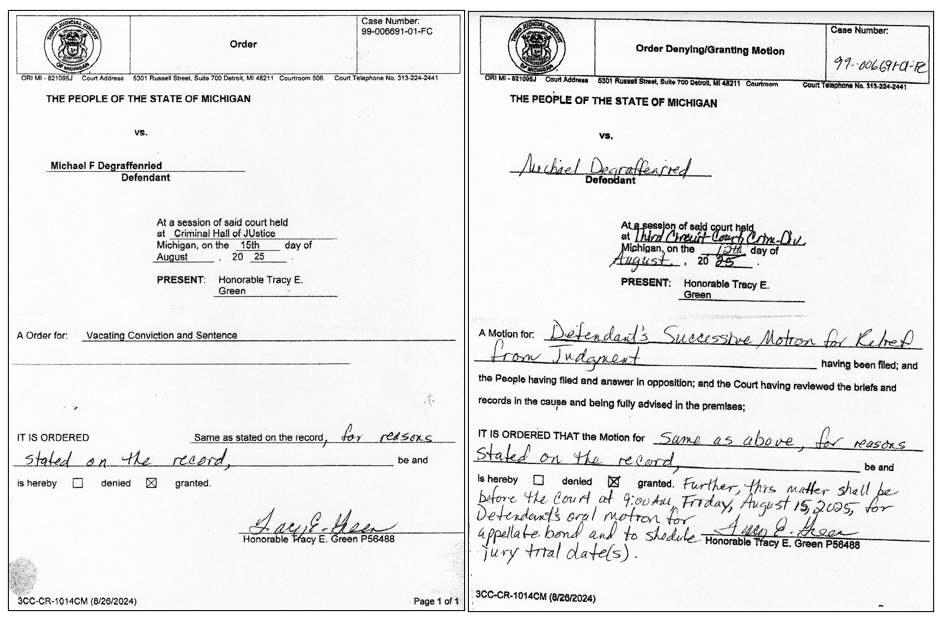 THIRD JUDICIAL CIRCUIT
OF MICHIGAN
Order
Case Number:
99-006691-01-FC
ORI MI - 821095J Court Address 5301 Russell Street, Suite 700 Detroit, MI 48211 Courtroom 506 Court Telephone No. 313-224-2441
THE PEOPLE OF THE STATE OF MICHIGAN
vs.
Michael F Degraffenried
Defendant
At a session of said court held
at Criminal Hall of JUstice
Michigan, on the 15th day of
August , 20 25 .
PRESENT: Honorable Tracy E.
Green
A Order for: Vacating Conviction and Sentence
IT IS ORDERED Same as stated on the record, for reasons
stated on the record, be and
is hereby ☐ denied ☒ granted.
Tracy E. Green
Honorable Tracy E. Green P56488
3CC-CR-1014CM (6/26/2024) Page 1 of 1
THIRD JUDICIAL CIRCUIT
OF MICHIGAN
Order Denying/Granting Motion
Case Number:
99-006691-01-FC
ORI MI - 821095J Court Address 5301 Russell Street, Suite 700 Detroit, MI 48211 Courtroom Court Telephone No. 313-224-2441
THE PEOPLE OF THE STATE OF MICHIGAN
vs.
Michael Degraffenried
Defendant
At a session of said court held
at Third Circuit Court, Crim-Div.
Michigan, on the day of
August , 20 25 .
PRESENT: Honorable Tracy E.
Green
A Motion for: Defendant's Successive Motion for Relief
from Judgment having been filed; and
the People having filed and answer in opposition; and the Court having reviewed the briefs and
records in the cause and being fully advised in the premises;
IT IS ORDERED THAT the Motion for same as above, for reasons
stated on the record, be and
is hereby ☐ denied ☒ granted. Further, this matter shall be
before the Court at 9:00 AM, Friday, August 15, 2025, for
Defendant's oral motion for
appellate bond and to shedule
jury trial date(s).
Tracy E. Green
Honorable Tracy E. Green P56488
3CC-CR-1014CM (6/26/2024)